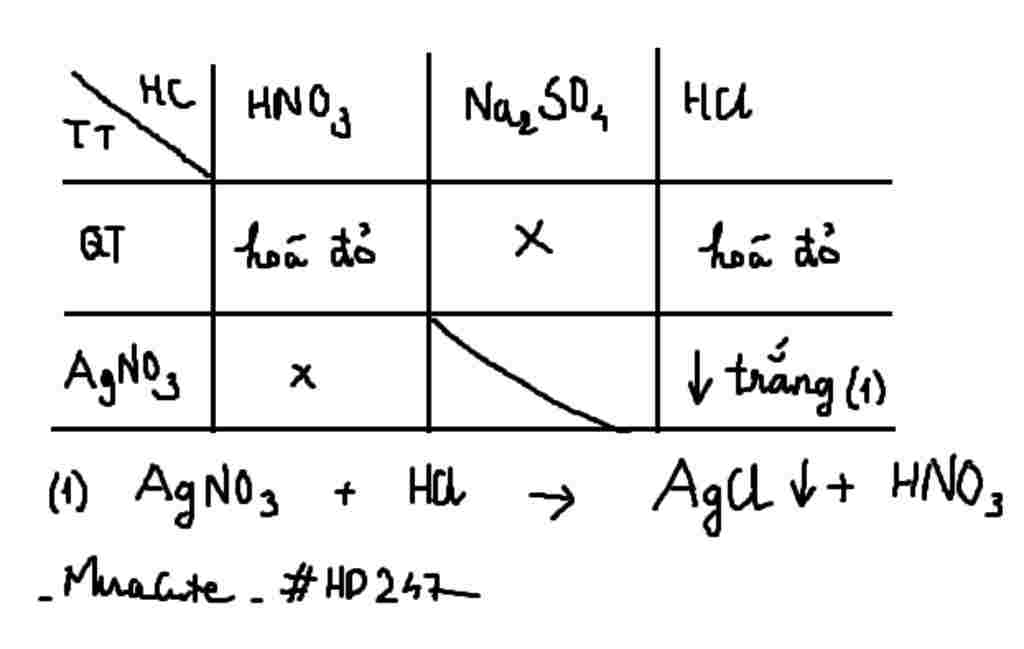 HC HNO₃ Na₂SO₄ HCl
TT
QT hoá đỏ X hoá đỏ
AgNO₃ x ↓ trắng (1)
(1) AgNO₃ + HCl → AgCl ↓ + HNO₃
_Muacute_ #HD247